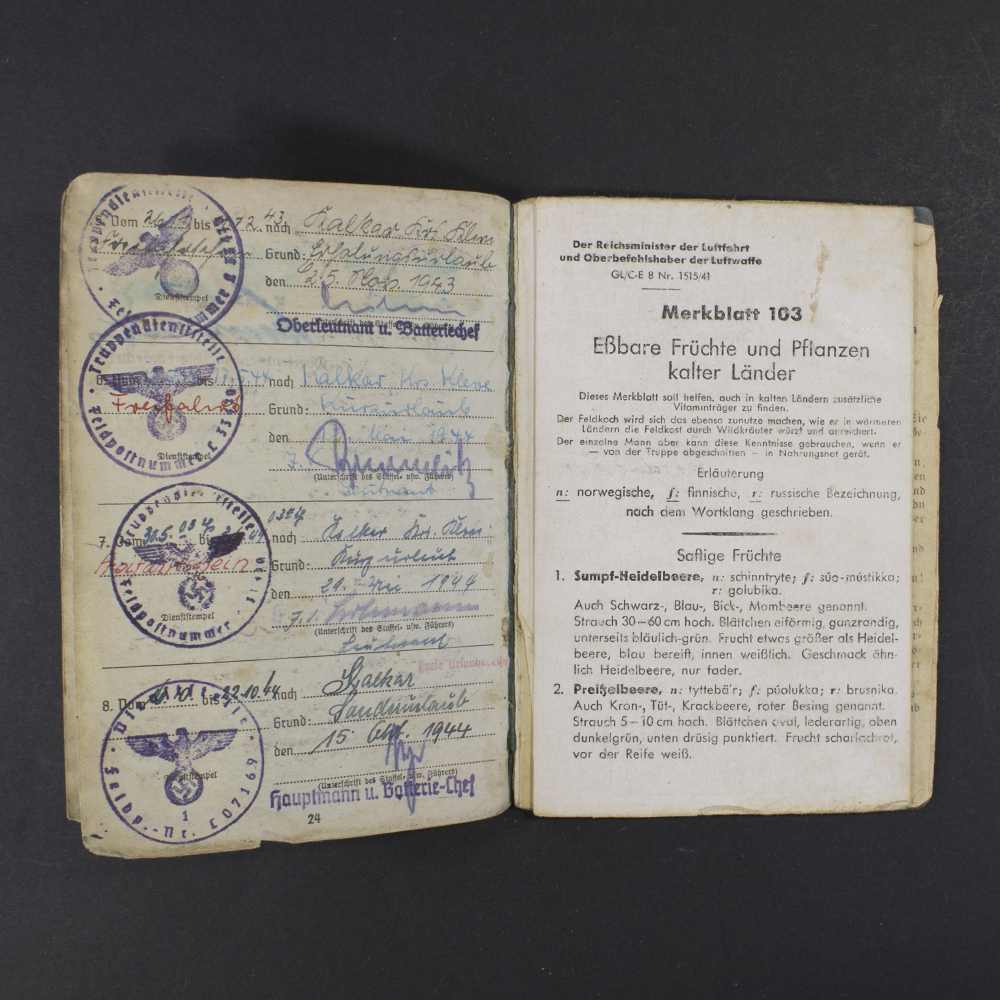 Vom 26. bis 43 nach Kalkar Krs. Kleve
Grund: Erholungsurlaub
den 25. Nov. 1943
Dienststempel
Oberleutnant u. Batteriechef
Truppendienststelle
Feldpostnummer
6. Vom bis 17.5.44 nach Kalkar Krs. Kleve
Grund: Kurzurlaub
den Mai 1944
Dienststempel
(Unterschrift des Staffel- usw. Führers)
Leutnant
Truppendienststelle
Feldpostnummer
7. Vom 30.5. bis nach Kalkar Krs. Kleve
Grund: Kurzurlaub
den 29. Mai 1944
Dienststempel
(Unterschrift des Staffel- usw. Führers)
Leutnant
Feldp.-Nr. L07169
1
8. Vom bis 22.10.44 nach Kalkar
Grund: Sonderurlaub
den 15. Okt. 1944
Dienststempel
(Unterschrift des Staffel- usw. Führers)
Hauptmann u. Batterie-Chef
24
Der Reichsminister der Luftfahrt
und Oberbefehlshaber der Luftwaffe
GL/C-E 8 Nr. 1515/41
Merkblatt 103
Eßbare Früchte und Pflanzen
kalter Länder
Dieses Merkblatt soll helfen, auch in kalten Ländern zusätzliche
Vitaminträger zu finden.
Der Feldkoch wird sich das ebenso zunutze machen, wie er in wärmeren
Ländern die Feldkost durch Wildkräuter würzt und anreichert.
Der einzelne Mann aber kann diese Kenntnisse gebrauchen, wenn er
— von der Truppe abgeschnitten — in Nahrungsnot gerät.
Erläuterung
n: norwegische, f: finnische, r: russische Bezeichnung,
nach dem Wortklang geschrieben.
Saftige Früchte
1. Sumpf-Heidelbeere, n: schinntryte; f: súo-mústikka;
r: golubika.
Auch Schwarz-, Blau-, Bick-, Mombeere genannt.
Strauch 30—60 cm hoch. Blättchen eiförmig, ganzrandig,
unterseits bläulich-grün. Frucht etwas größer als Heidel-
beere, blau bereift, innen weißlich. Geschmack ähn-
lich Heidelbeere, nur fader.
2. Preißelbeere, n: tyttebä'r; f: púolukka; r: brusnika.
Auch Kron-, Tüt-, Krackbeere, roter Besing genannt.
Strauch 5—10 cm hoch. Blättchen oval, lederartig, oben
dunkelgrün, unten drüsig punktiert. Frucht scharlachrot,
vor der Reife weiß.